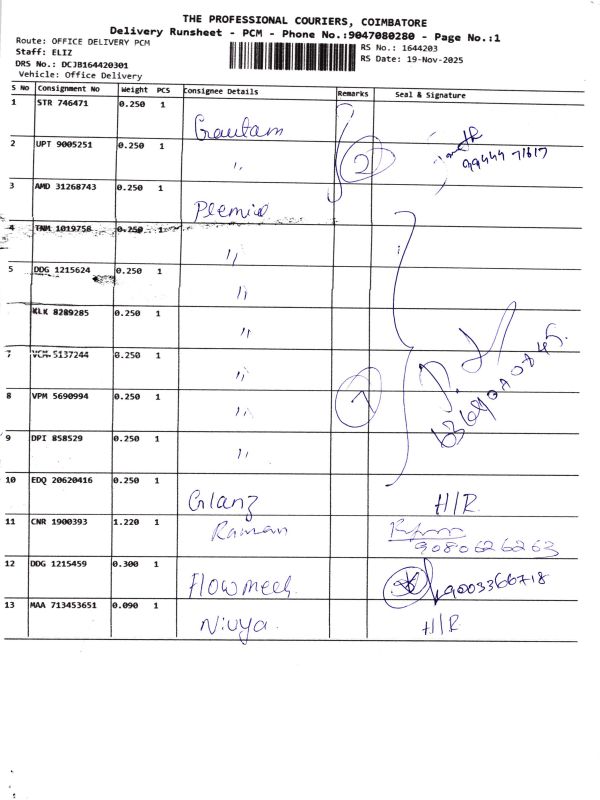 THE PROFESSIONAL COURIERS, COIMBATORE
Delivery Runsheet - PCM - Phone No.:9047080280 - Page No.:1
Route: OFFICE DELIVERY PCM
RS No.: 1644203
Staff: ELIZ
RS Date: 19-Nov-2025
DRS No.: DCJB164420301
Vehicle: Office Delivery
S No Consignment No Weight PCS Consignee Details Remarks Seal & Signature
1 STR 746471 0.250 1 Gautam
2 UPT 9005251 0.250 1 〃 2 99444 71617
3 AMD 31268743 0.250 1 Premid
4 TNM 1019758 0.250 1 〃
5 DDG 1215624 0.250 1 〃
KLK 8289285 0.250 1 〃
7 VCM 5137244 0.250 1 〃
8 VPM 5690994 0.250 1 〃 7
9 DPI 858529 0.250 1 〃
10 EDQ 20620416 0.250 1 Glanz H/R
11 CNR 1900393 1.220 1 Raman 9080626263
12 DDG 1215459 0.300 1 Flowmech 9003366718
13 MAA 713453651 0.090 1 Nivya H/R